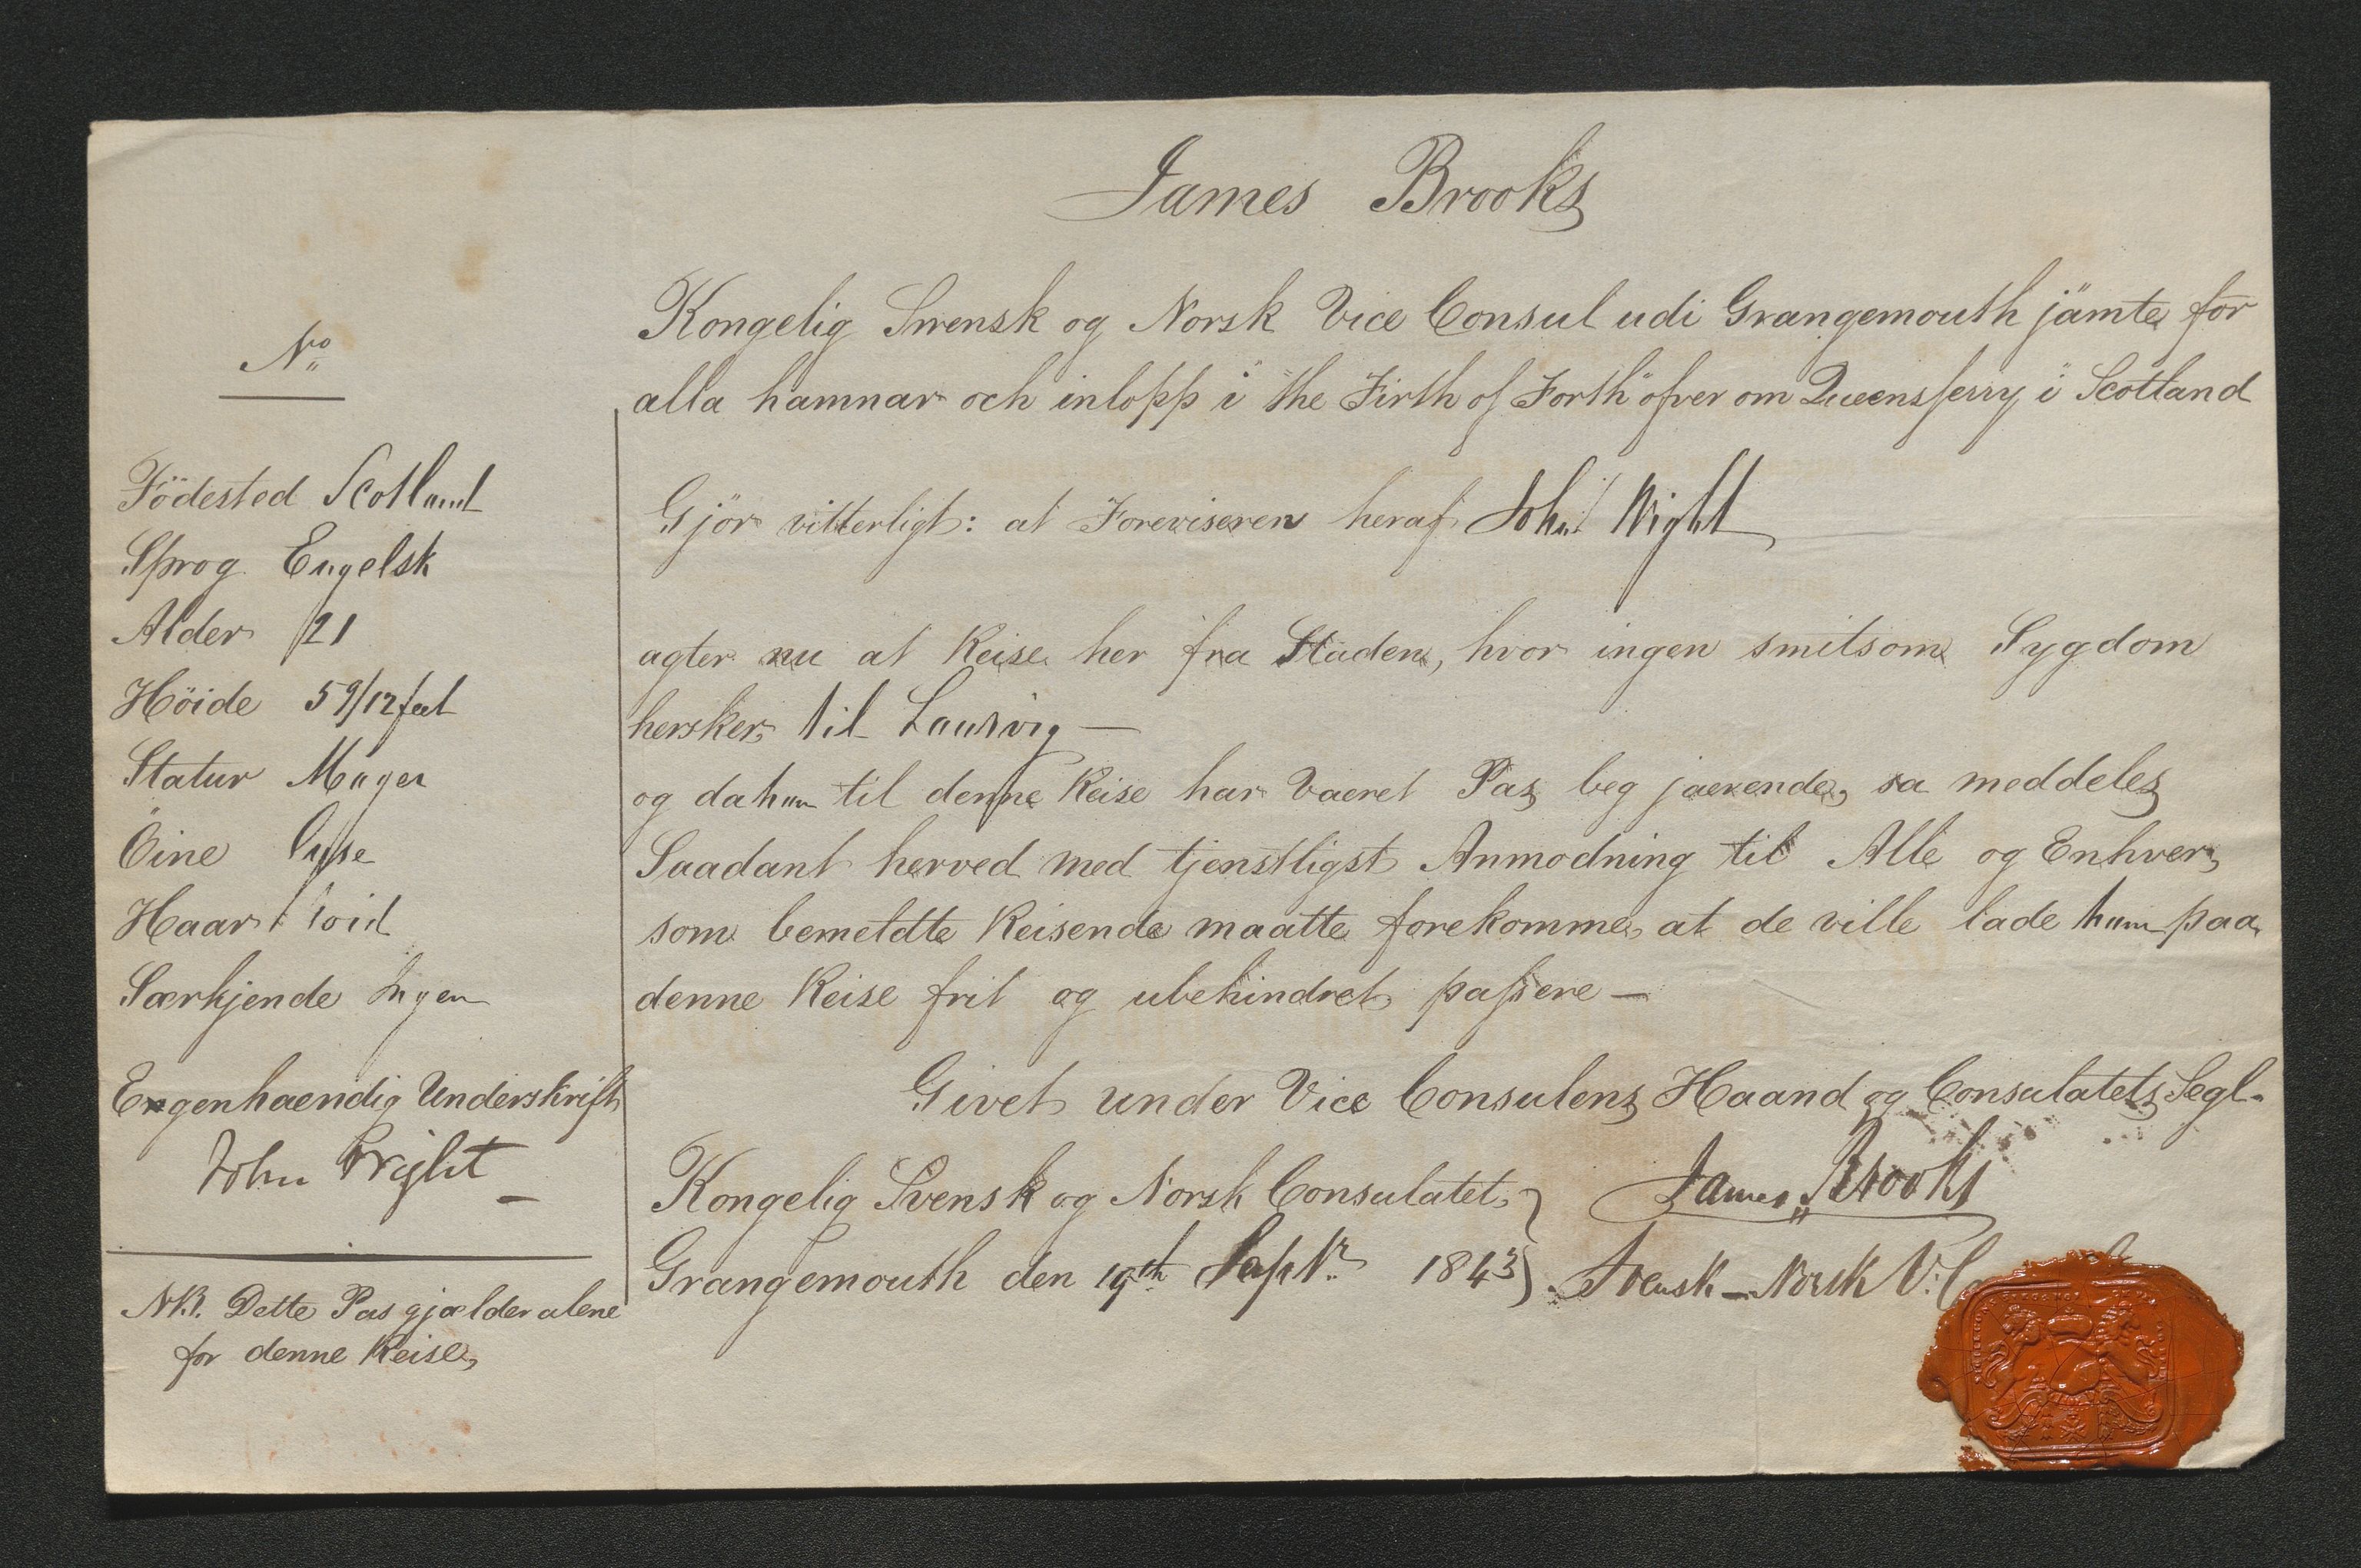 James Brooks
Kongelig Svensk og Norsk Vice Consul udi Grangemouth jämte för
alla hamnar och inlopp i "the Firth of Forth" öfver om Queensferry i Scotland
Gjör vitterligt: at Foreviseren heraf John Wright
agter nu at Reise her fra Staden, hvor ingen smitsom Sygdom
hersker til Laurvig —
og da han til denne Reise har Vaeret Pas beg jaerende, sa meddeles
Saadant herved med tjenstligst Anmodning til Alle og Enhver,
som bemeldte Reisende maatte forekomme, at de ville lade ham paa
denne Reise frit og ubehindret passere —
Givet under Vice Consulens Haand og Consulatets Segl.
Kongelig Svensk og Norsk Consulatet
Grangemouth den 19th Septr. 1843
James Brooks
Svensk - Norsk V. C
No
Födested Scotland
Sprog Engelsk
Alder 21
Höide 5 9/12 feet
Statur Mager
Öine Lyse
Haar
Særkjende Ingen
Engenhaendig Underskrift
John Wright
NB. Dette Pas gjælder alene
for denne Reise